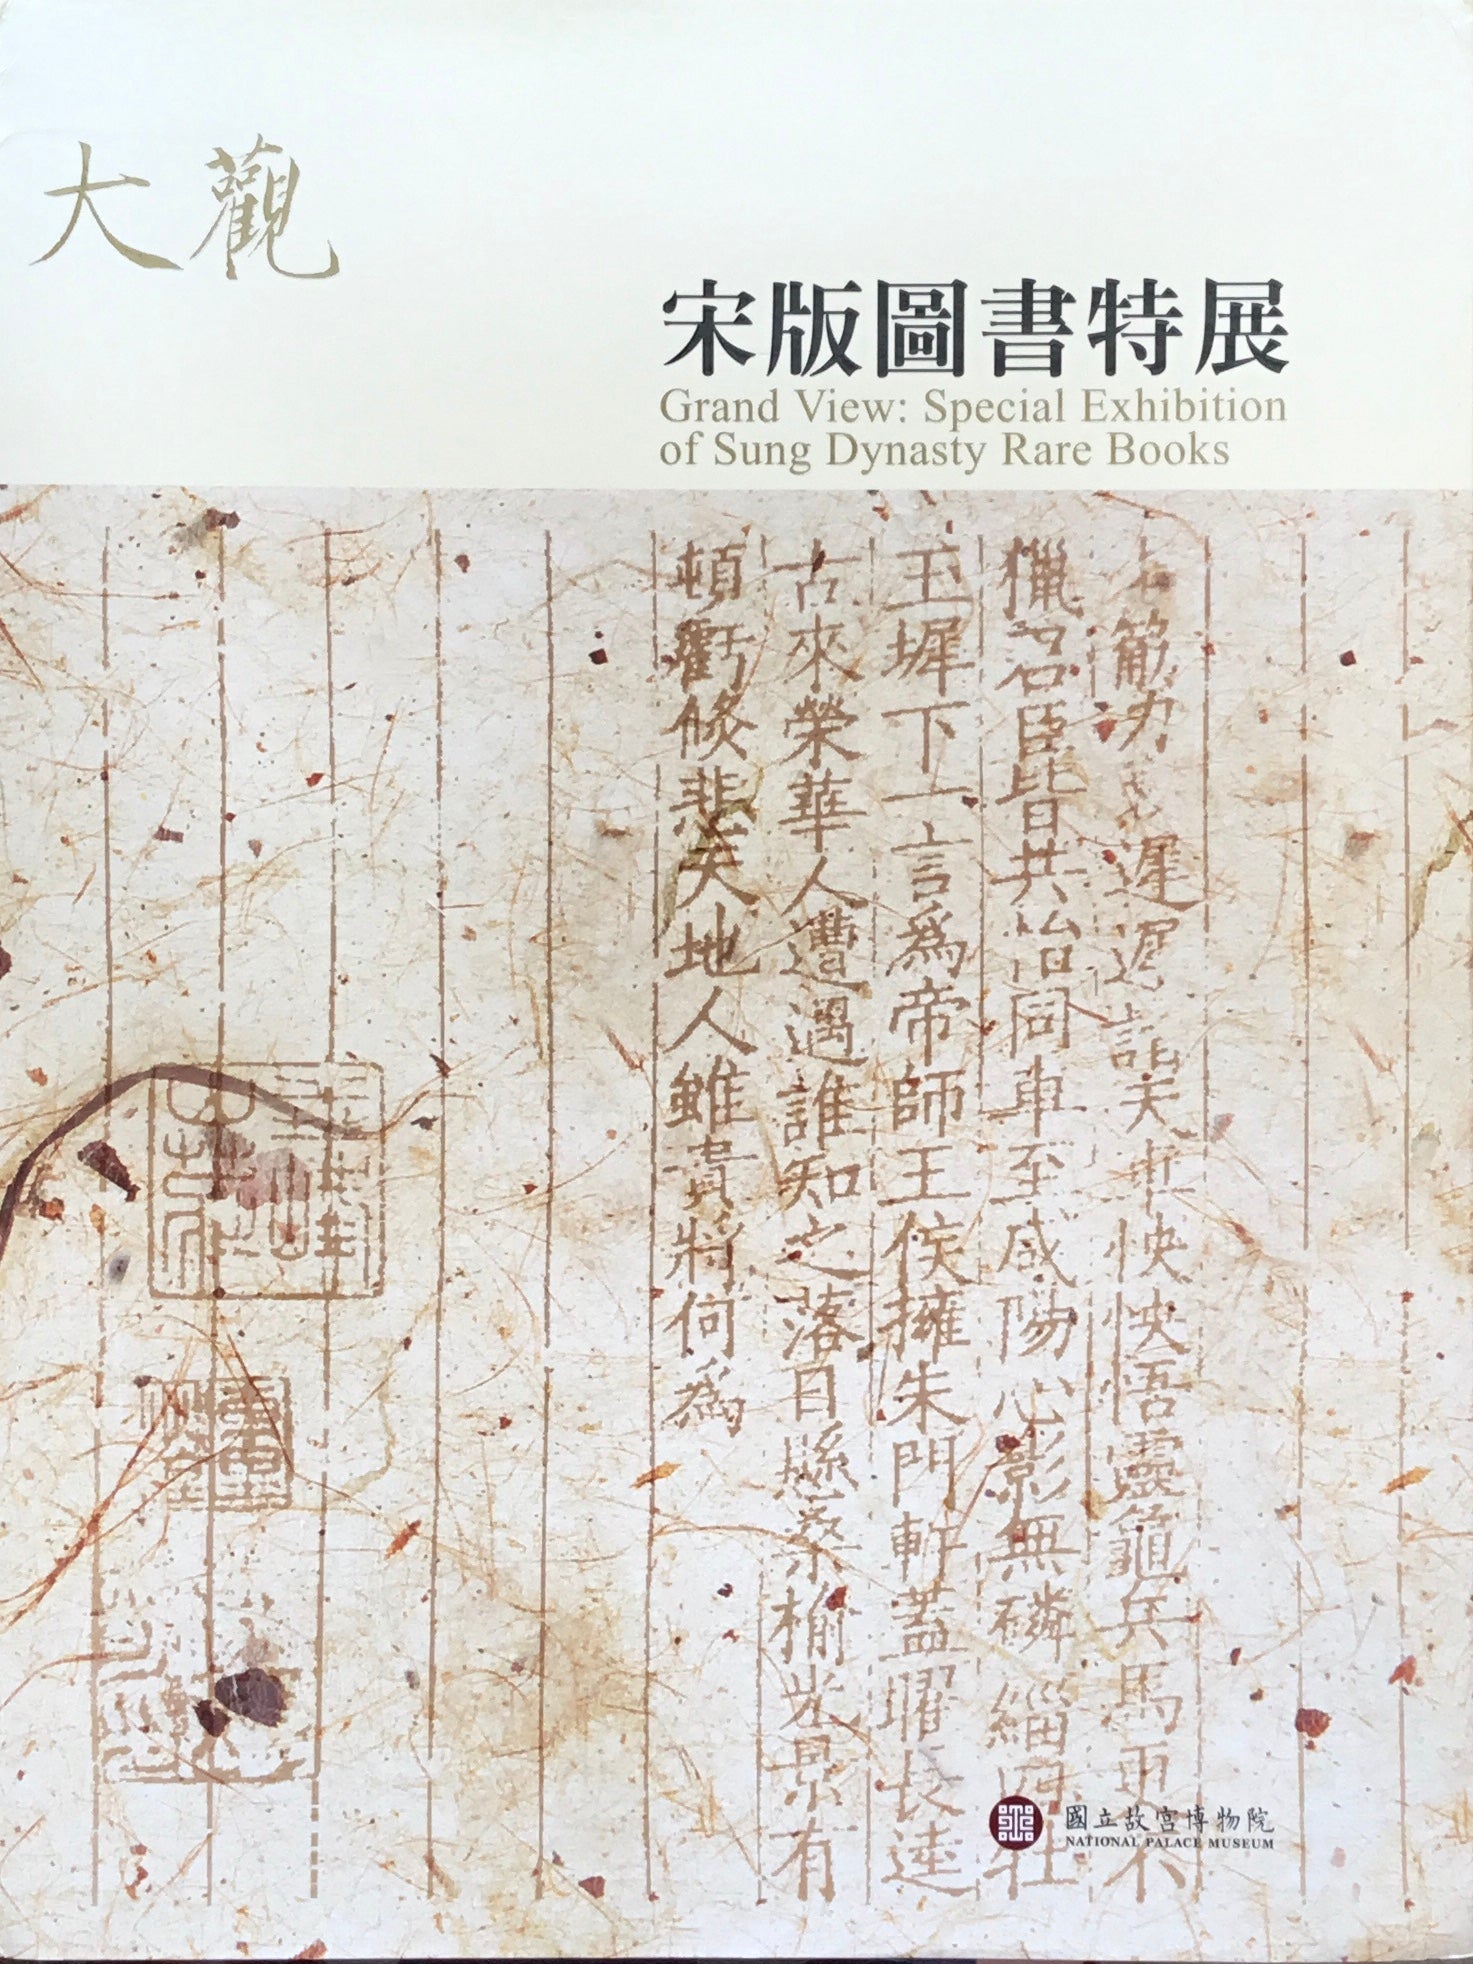 大觀
宋版圖書特展
Grand View: Special Exhibition
of Sung Dynasty Rare Books
筋力遲遲怏怏悟靈龜兵馬不
獵名臣皆共治同車至咸陽心影無磷緇
玉墀下一言爲帝師王侯擁朱門軒蓋曜長逵
古來榮華人遭遇誰知之落日懸桑榆光景有
頓虧倐悲天地人雖貴將何爲
國立故宮博物院
NATIONAL PALACE MUSEUM